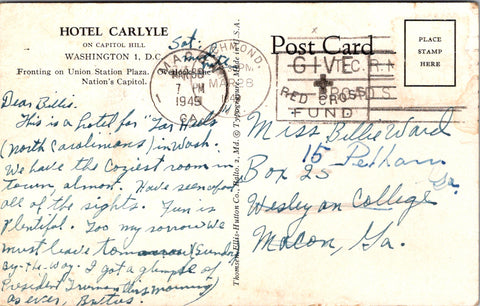 HOTEL CARLYLE
ON CAPITOL HILL
WASHINGTON 1, D.C.
Fronting on Union Station Plaza. Overlooks the
Nation's Capitol.
Sat.
Post Card
PLACE
STAMP
HERE
RICHMOND,
MACON
MAR 30
7 PM
1945
GA.
PM
MAR 28
GIVE
RED CROSS
FUND
Dear Billie,
This is a hotel for "Tar Heels
(North Carolinians) in Wash.
We have the coziest room in
town, almost. Have seen for
all of the sights. Fun is
Plentiful. Too my sorrow we
must leave tomorrow (Sunday
By-the-way. I got a glimpse of
President Truman this morning)
as ever,
Thomson-Ellis-Hutton Co., Balto. 2, Md. © Topogravure Made in U.S.A.
Miss Billie Ward
Box 25
15 Pelham
Ga.
Wesleyan College
Macon, Ga.